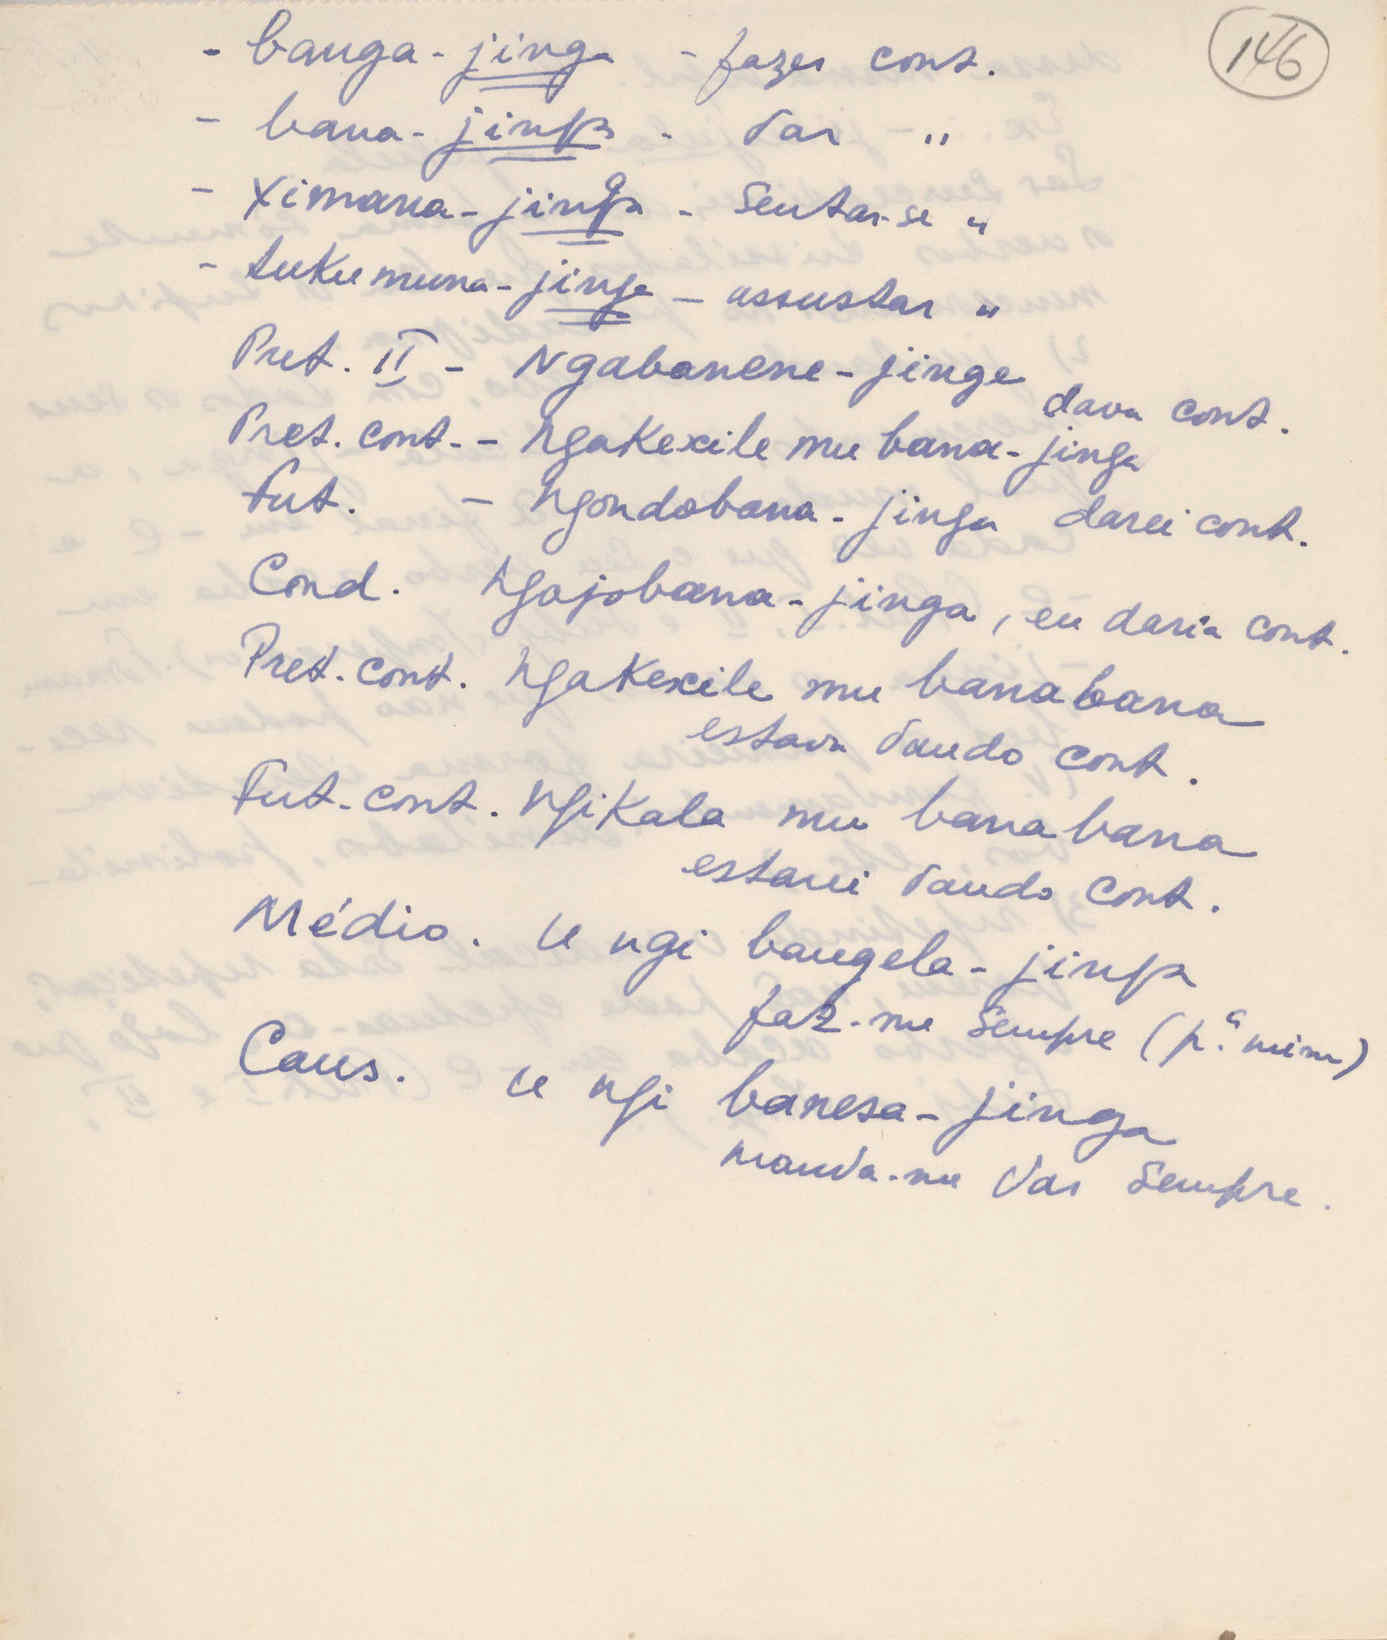 146
- banga-jinga - fazer cont.
- bana-jinga - dar - "
- Ximana-jinga - sentar-se "
- tukumuna-jinga - assustar "
Pret. II - Ngabanene-jinge
dava cont.
Pret. cont. - Ngakexile mu bana-jinga
Fut. - Ngondobana-jinga darei cont.
Cond. Ngajobana-jinga, eu daria cont.
Pret. cont. Ngakexile mu banabana
estava dando cont.
Fut. cont. Ngikala mu banabana
estarei dando cont.
Médio. U ngi bangela-jinga
faz-me sempre (p.ª mim)
Caus. U ngi banesa-jinga
manda-me dar sempre.